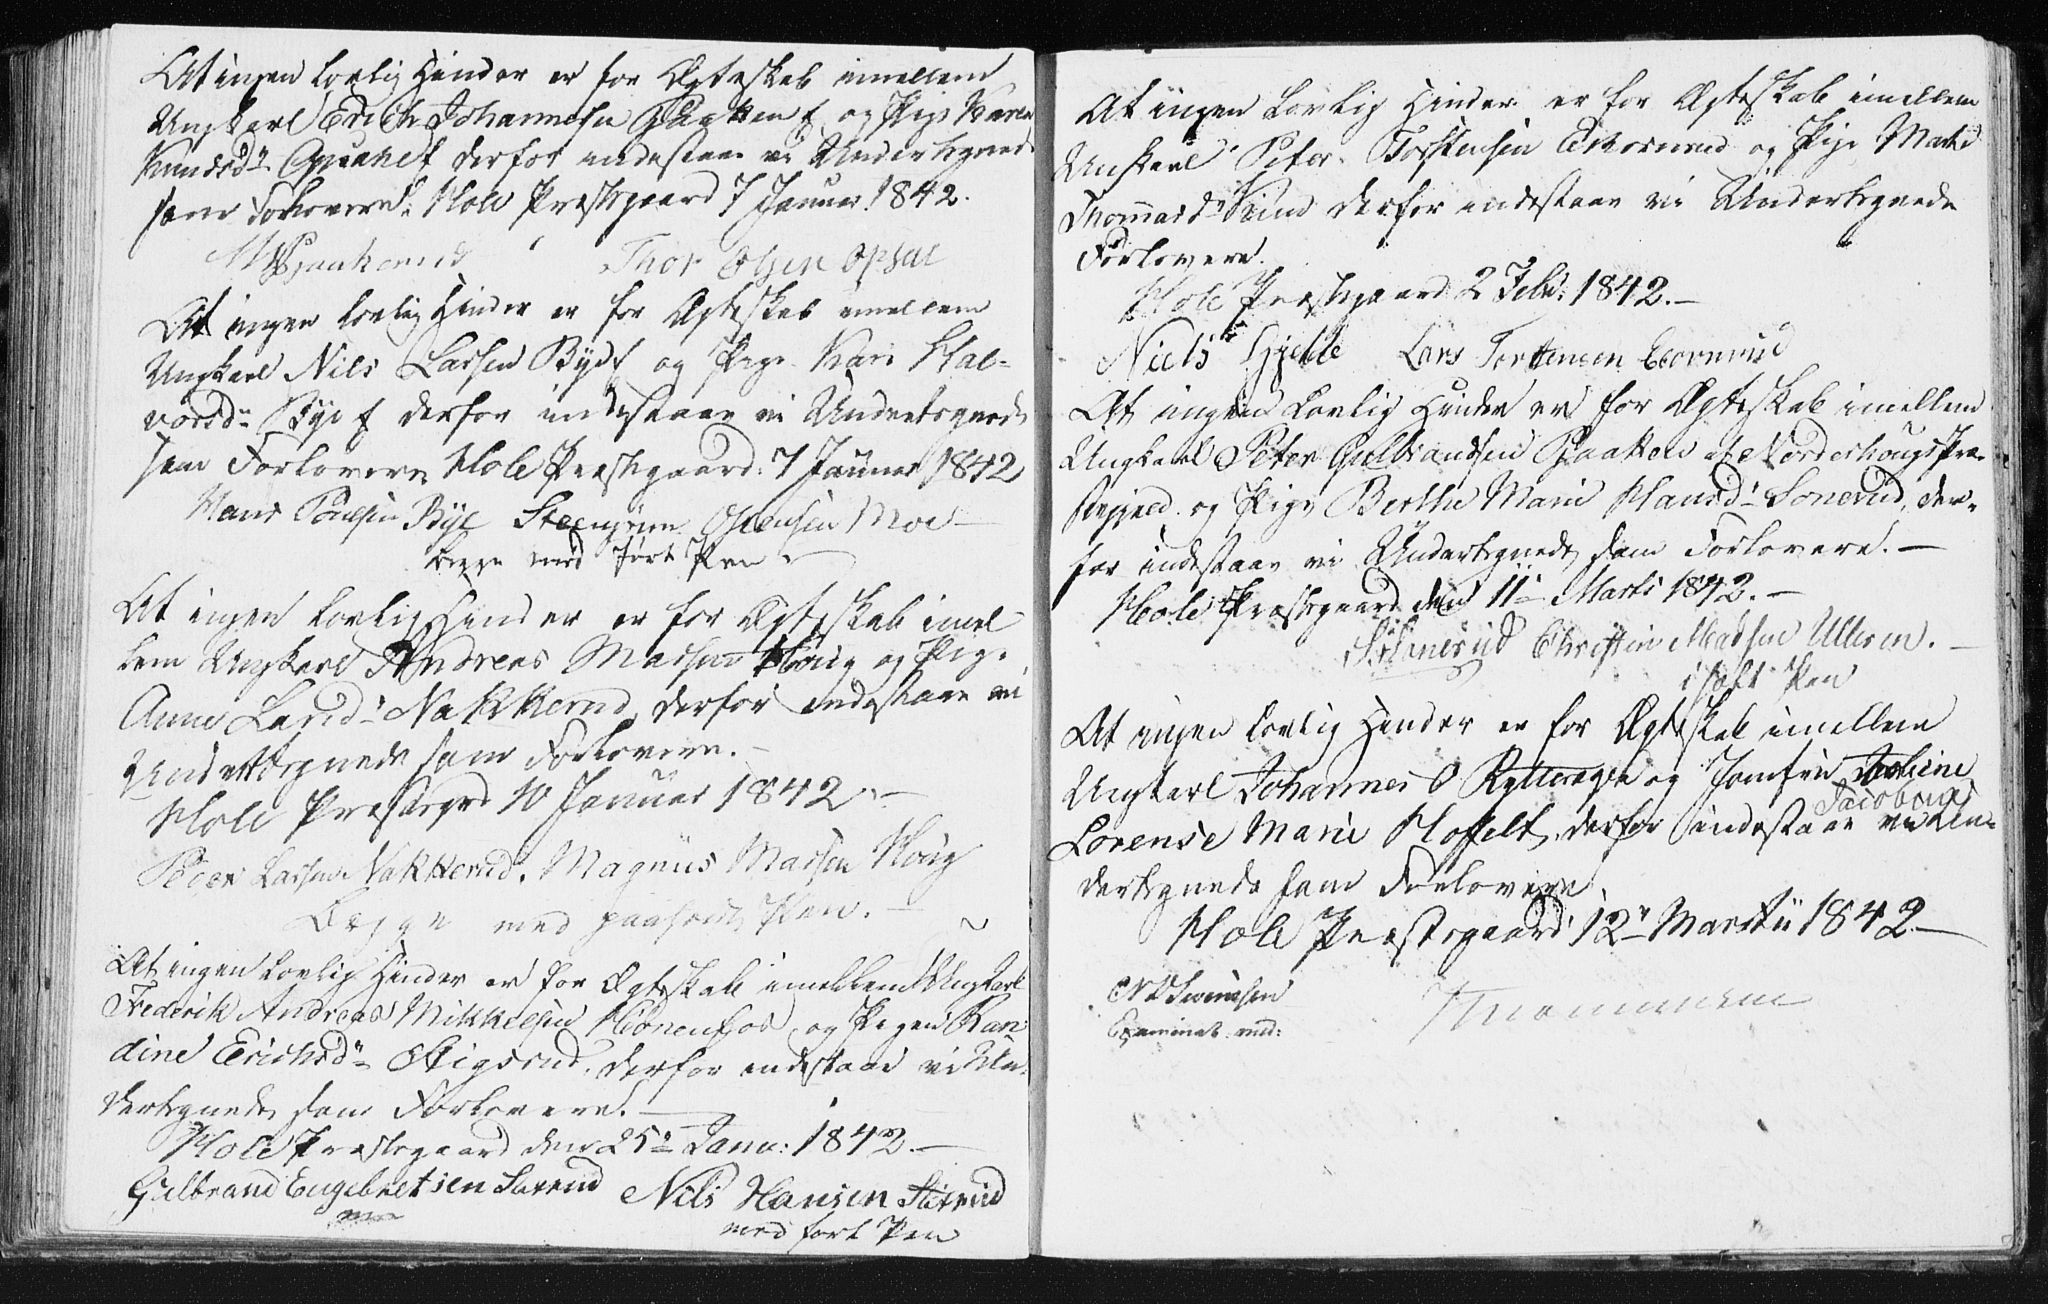 At ingen lovlig Hinder er for Ægteskab imellem
Ungkarl Erich Johannesen og Pige Karen
Knudsd: derfor indestaae vi Undertegnede
som Forlovere. Hole Præstegaard 7 Januar 1842.
Thor Olsen Opsal
At ingen lovlig Hinder er for Ægteskab imellem
Ungkarl Nils Larsen Bye og Pige Kari Hal-
vorsd: Bye derfor indestaae vi Undertegnede
som Forlovere Hole Præstegaard 7 Januar 1842
Hans Poulsen Bye Steengrim Moe
begge med ført Pen
At ingen lovlig Hinder er for Ægteskab imel
lem Ungkarl Andreas Madsen Houg og Pige
Anne Larsd: Nakkerud, derfor indestaae vi
Undertegnede som Forlovere.
Hole Præstegrd 10 Januar 1842.
Peder Larsen Nakkerud. Magnus Madsen Houg
Begge med paaholden Pen.
At ingen lovlig Hinder er for Ægteskab imellem Ungkarl
Frederik Andreas Mikkelsen Hønenfos og Pigen Ran
dine Erichsd: Stigsrud, derfor indestaae vi Un-
dertegnede som Forlovere.
Hole Præstegaard den 25: Janu: 1842.
Gulbrand Engebretsen Nils Hansen
med ført Pen
At ingen lovlig Hinder er for Ægteskab imellem
Unkarl Peter Torstensen Ekornrud og Pige Marthe
Thomasd: Viin derfor indestaae vi Undertegnede
Forlovere.
Hole Præstegaard 2 Febr: 1842.
Niels Gjelde Lars Tortensen Ecornrud
At ingen lovlig Hinder er for Ægteskab imellem
Ungkarl Peter Gulbrandsen af Norderhougs Præ-
stegjeld og Pige Berthe Marie Hansd: Sonerud, der-
for indestaae vi Undertegnede som Forlovere.
Hole Præstegaard den 11: Marts 1842.
Sonerud Christin Madsen Ullern.
i holt Pen
At ingen lovlig Hinder er for Ægteskab imellem
Ungkarl Johannes O Rytterager og Jomfru
Jacobine
Lorense Marie Hoffelt, derfor indestaae vi Un-
dertegnede som Forlovere
Hole Præstegaard 12: Martii 1842.
Svendsen
Examinat: